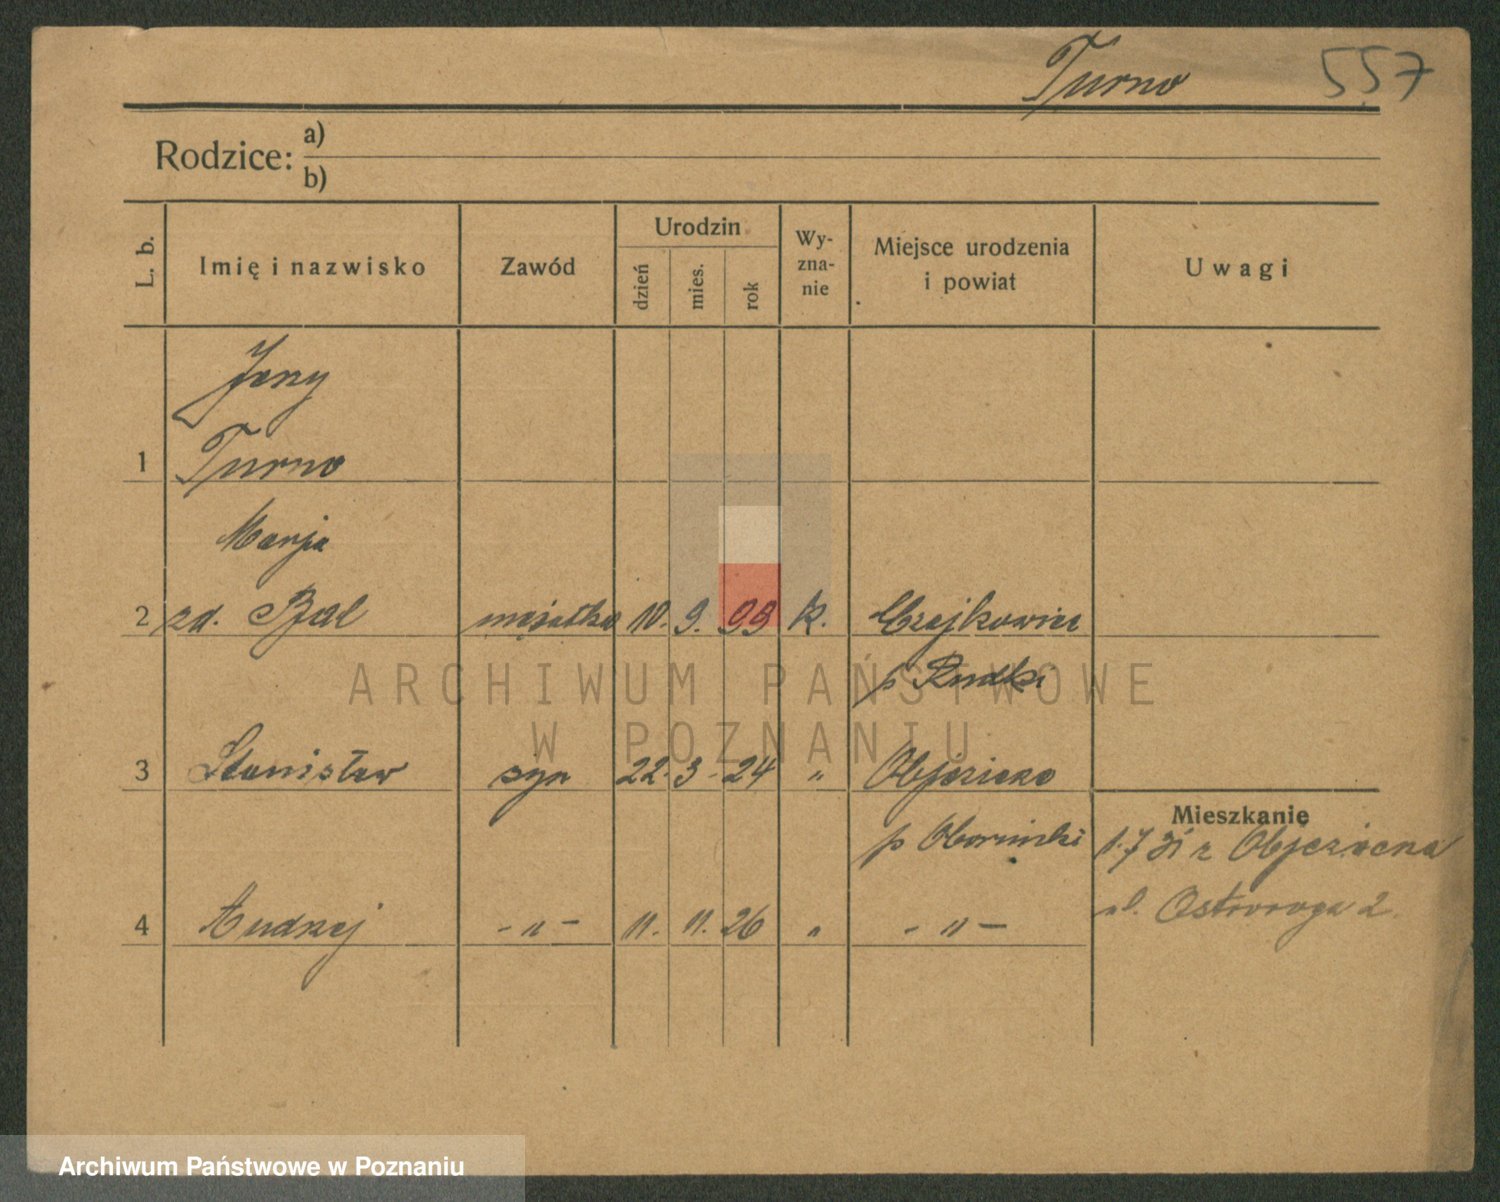 Turno 557
Rodzice: a)
b)
L. b. Imię i nazwisko Zawód Urodzin dzień mies. rok Wy-zna-nie Miejsce urodzenia i powiat Uwagi
Jerzy
1 Turno
Marja
2 zd. Bal mężatka 10. 9. 99 k. Czajkowice
p Rudki
3 Stanisław syn 22. 3. 24 " Objezierze
p Obornicki
Mieszkanie
1.7 31 z Objezierza
ul. Ostroroga 2
4 Andrzej - " - 11. 11. 26 " - " -
ARCHIWUM PAŃSTWOWE
W POZNANIU
Archiwum Państwowe w Poznaniu